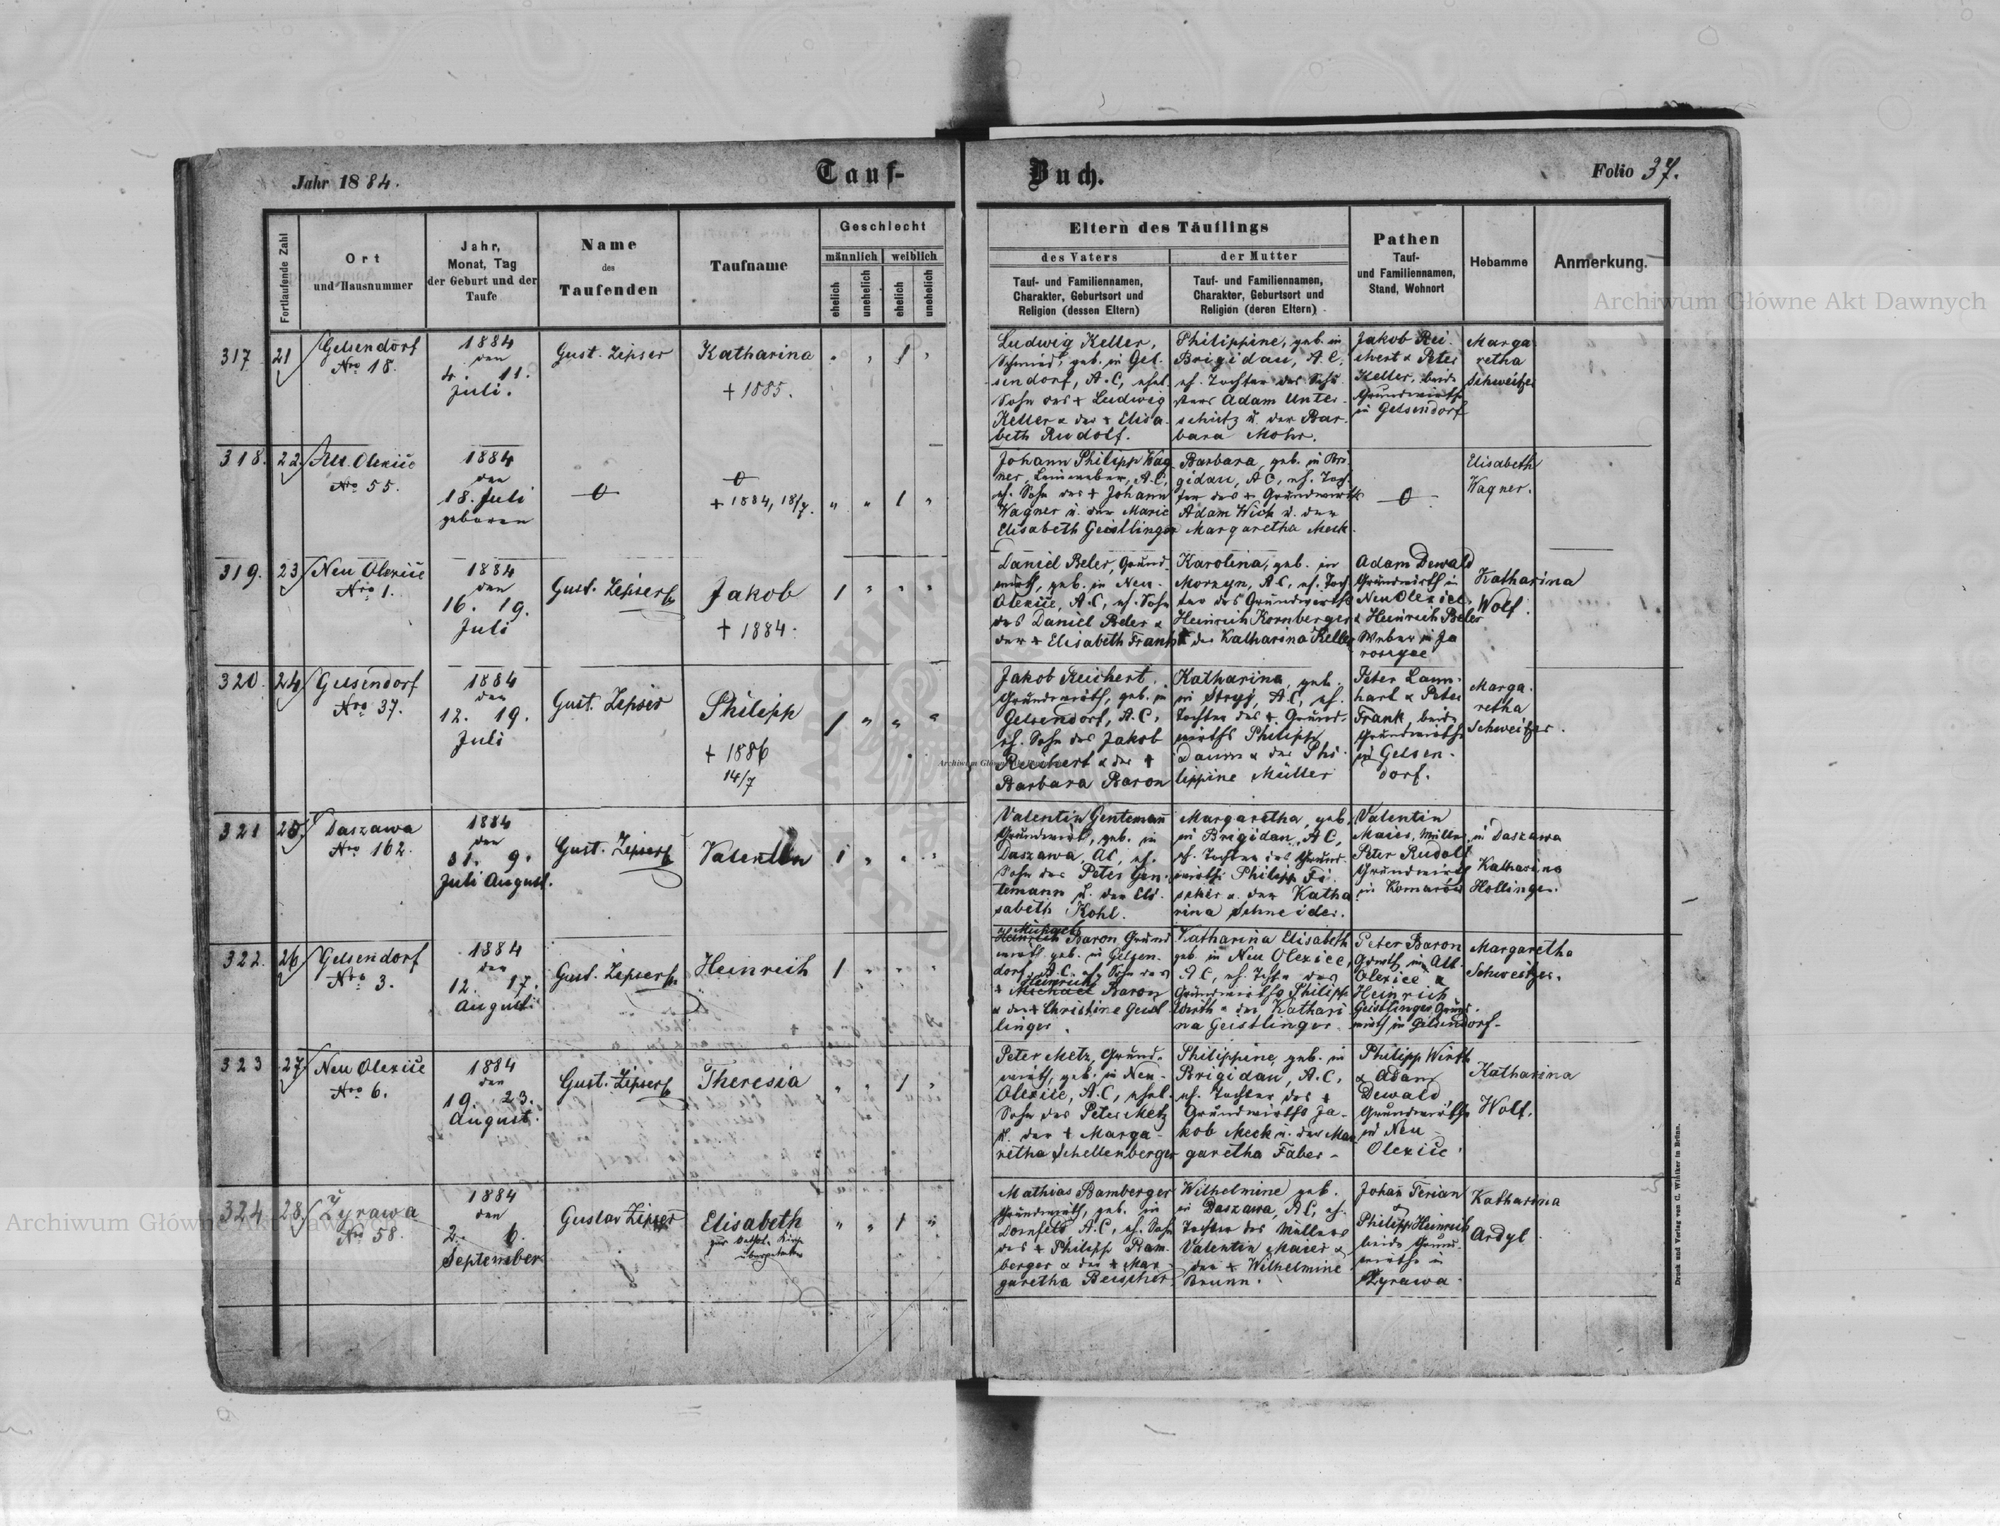 Jahr 1884.
Tauf-
Buch.
Folio 37.
Fortlaufende Zahl
Ort
und Hausnummer
Jahr,
Monat, Tag
der Geburt und der
Taufe
Name
des
Taufenden
Taufname
Geschlecht
männlich
weiblich
ehelich
unehelich
ehelich
unehelich
Eltern des Täuflings
des Vaters
der Mutter
Tauf- und Familiennamen,
Charakter, Geburtsort und
Religion (dessen Eltern)
Tauf- und Familiennamen,
Charakter, Geburtsort und
Religion (deren Eltern)
Pathen
Tauf-
und Familiennamen,
Stand, Wohnort
Hebamme
Anmerkung.
317
21
Gelsendorf
Nro 18.
1884
den
4. 11.
Juli.
Gust. Zipser
Katharina
+ 1885.
" " 1 "
Ludwig Keller,
Schmied, geb. in Gel-
sendorf, A.C., ehel.
Sohn des + Ludwig
Keller u der + Elisa-
beth Rudolf.
Philippine, geb. in
Brigidau, A.C.
eh. Tochter des Schu-
sters Adam Unter-
schütz u. der Bar-
bara Mohr.
Jakob Rei-
chert u Peter
Keller, beide
Grundwirthe
in Gelsendorf
Marga-
retha
Schweitzer
318.
22
Neu Olexice
Nro 55.
1884
den
18. Juli
geboren
0
0
+ 1884, 18/7.
" " 1 "
Johann Philipp Wag-
ner, Leineweber, A.C.,
eh. Sohn des + Johann
Wagner u. der Marie
Elisabeth Geistlinger
Barbara, geb. in Bri-
gidau, A.C., eh. Toch-
ter des + Grundwirths
Adam Wick u. der
Margaretha Meck.
0
Elisabeth
Wagner.
319.
23
Neu Olexice
Nro 1.
1884
den
16. 19.
Juli
Gust. Zipser
Jakob
+ 1884.
1 " " "
Daniel Beler, Grund-
wirth, geb. in Neu-
Olexice, A.C., eh. Sohn
des Daniel Beler u
der + Elisabeth Frank
Karolina, geb. in
Morzyn, A.C., eh. Toch-
ter des Grundwirths
Heinrich Kornberger
u der Katharina Keller
Adam Dewald
Grundwirth in
Neu Olexice
u Heinrich Beler
Weber in Ja-
Katharina
Wolf.
320.
24
Gelsendorf
Nro 37.
1884
den
12. 19.
Juli
Gust. Zipser
Philipp
+ 1886
14/7
1 " " "
Jakob Reichert,
Grundwirth, geb. in
Gelsendorf, A.C.,
eh. Sohn des Jakob
Reichert u der +
Barbara Baron
Katharina, geb.
in Stryj, A.C., eh.
Tochter des + Grund-
wirths Philipp
Daum u der Phi-
lippine Müller
Peter Lann-
hart u Peter
Frank, beide
Grundwirthe
in Gelsen-
dorf.
Marga-
retha
Schweitzer.
321
25
Daszawa
Nro 162.
1884
den
31. 9.
Juli August.
Gust. Zipser
Valentin
1 " " "
Valentin Gentemann
Grundwirth, geb. in
Daszawa, AC, eh.
Sohn des Peter Gen-
temann u. der Eli-
sabeth Kohl.
Margaretha, geb.
in Brigidau, A.C.,
eh. Tochter des Grund-
wirths Philipp
u. der Katha-
rina Schneider.
Valentin
Maier, Müller in Daszawa
Peter Rudolf
Grundwirth
in Komarów
Katharina
Hollinger.
322.
26
Gelsendorf
Nro 3.
1884
den
12. 17.
August
Gust. Zipser
Heinrich
1 " " "
Michael
Heinrich Baron Grund-
wirth geb. in Gelsen-
dorf, A.C. eh. Sohn des
Heinrich
+ Michael Baron
u der + Christine Geist-
linger.
Katharina Elisabeth
geb. in Neu Olexice,
A.C., eh. Tocht. des
Grundwirths Philipp
Wirth u der Kathari-
na Geistlinger.
Peter Baron
Grwth in Alt-
Olexice u
Heinrich
Geistlinger Grund-
wirth in Gelsendorf.
Margaretha
Schweitzer.
323
27
Neu Olexice
Nro 6.
1884
den
19. 23.
August.
Gust. Zipser
Theresia
" " 1 "
Peter Metz, Grund-
wirth, geb. in Neu-
Olexice, A.C., ehel.
Sohn des Peter Metz
u. der + Marga-
retha Schellenberger
Philippine, geb. in
Brigidau, A.C.,
eh. Tochter des +
Grundwirths Ja-
kob Meck u. der Mar-
garetha Faber.
Philipp Wirth
u Adam
Dewald
Grundwirthe
in Neu
Olexice.
Katharina
Wolf.
324
28
Żyrawa
Nro 58.
1884
den
2. 6.
September
Gustav Zipser
Elisabeth
zur kathol. Kirche
übergetreten
" " 1 "
Mathias Bamberger
Grundwirth, geb. in
Dornfeld A.C., eh. Sohn
des + Philipp Bam-
berger u der + Mar-
garetha Beischer
Wilhelmine geb.
in Daszawa, A.C., eh.
Tochter des Müllers
Valentin Maier u
der + Wilhelmine
Brunn.
Johan Terian
u
Philipp Heinrich
beide Grund-
wirthe in
Żyrawa.
Katharina
Ardyl.
Druck und Verlag von C. Winiker in Brünn.
Archiwum Główne Akt Dawnych
Archiwum Główne Akt Dawnych